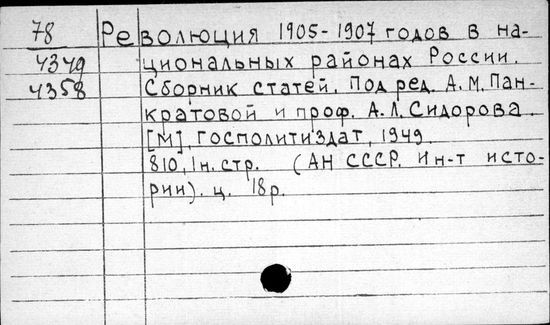 78 Революция 1905-1907 годов в на-
4349 циональных районах России.
4358 Сборник статей. Под ред. А.М.Пан-
кратовой и проф. А.Л.Сидорова.
[М], Госполитиздат, 1949.
810, 1н.стр. (АН СССР. Ин-т исто-
рии). ц. 18р.